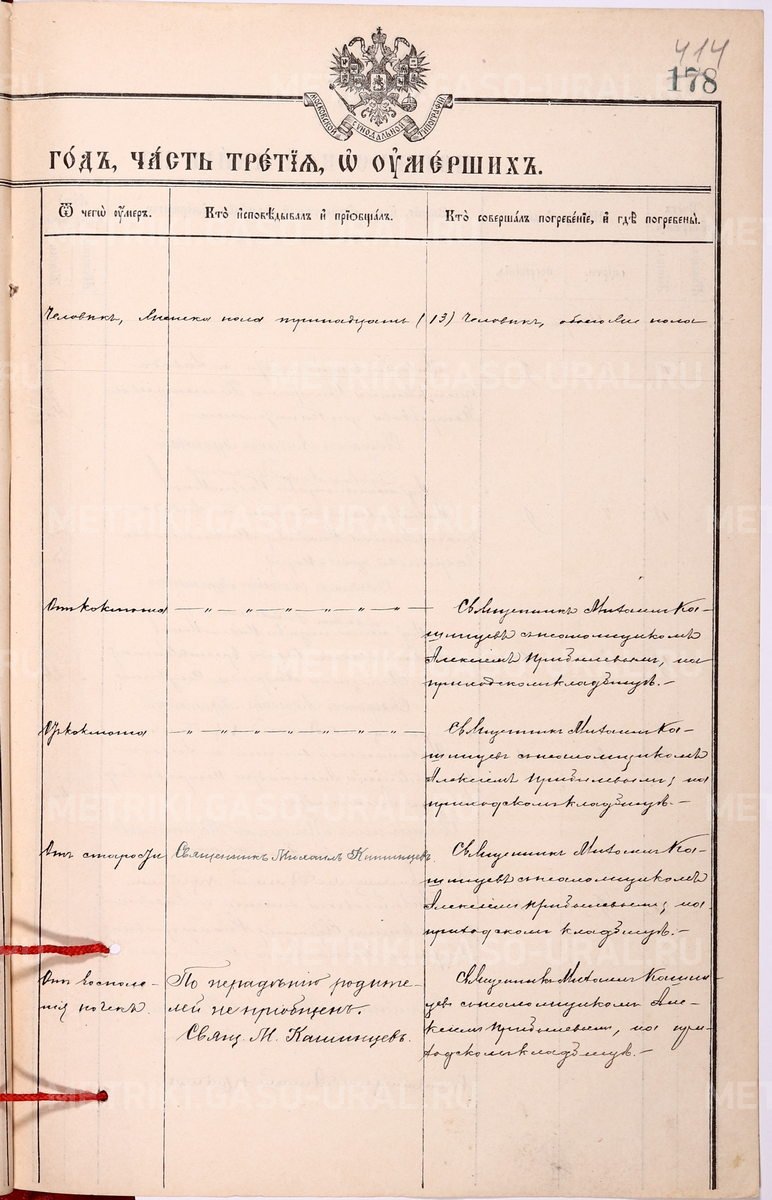 414
178
МОСКОВСКОЙ СѴНОДАЛЬНОЙ ТИПОГРАФІИ
ГО́ДЪ, ЧА́СТЬ ТРЕ́ТІЯ, Ѡ҆ ОУ҆МЕ́РШИХЪ.
Ѿ чегѡ̀ оу҆́меръ.
Кто̀ и҆сповѣ́дывалъ и҆ прїѡбща́лъ.
Кто̀ соверша́лъ погребе́нїе, и҆ гдѣ̀ погребены̀.
Человѣкъ, Женска пола тринадцать (13) Человѣкъ, обоего пола
Отъ коклюша
— „ — „ — „ — „ — „ — „ —
Священникъ Михаилъ Ка-
шинцевъ съ псаломщикомъ
Алексѣемъ Прибылевымъ, на
приходскомъ кладбищѣ. —
От коклюша
— „ — „ — „ — „ — „ — „ —
Священникъ Михаилъ Ка-
шинцевъ съ псаломщикомъ
Алексѣемъ Прибылевымъ, на
приходскомъ кладбищѣ. —
Отъ старости
Священникъ Михаилъ Кашинцевъ.
Священникъ Михаилъ Ка-
шинцевъ съ псаломщикомъ
Алексѣемъ Прибылевымъ, на
приходскомъ кладбищѣ. —
Отъ воспале-
нія почекъ.
По нерадѣнію родите-
лей не пріобщенъ.
Свящ. М. Кашинцевъ.
Священникъ Михаилъ Кашин-
цевъ съ псаломщикомъ Але-
ксѣемъ Прибылевымъ, на при-
ходскомъ кладбищѣ. —
METRIKI.GASO-URAL.RU